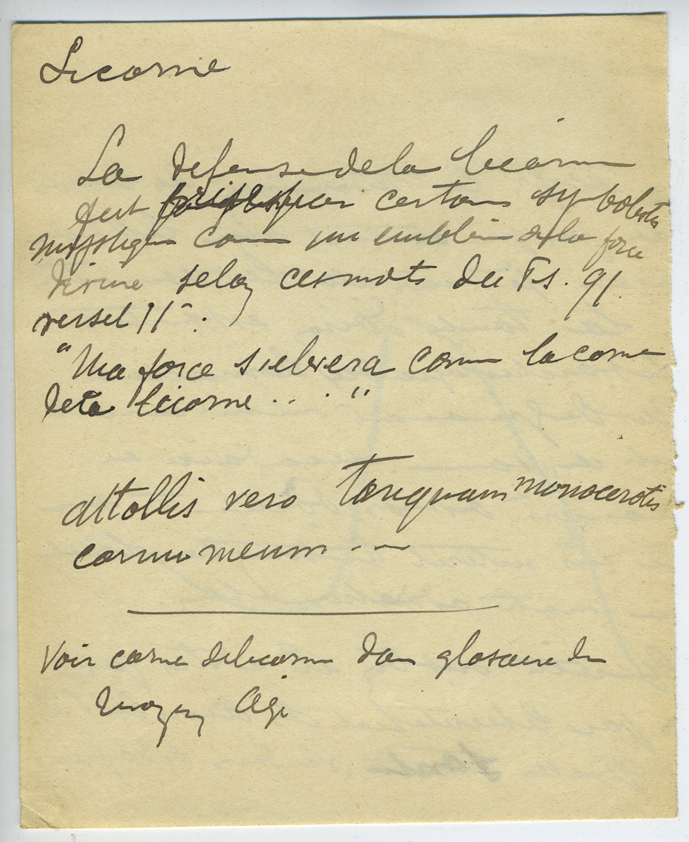 Licorne
La défense de la licorne
fut par certains symbolistes
mystiques comme un emblème de la force
divine selon ces mots du Ps. 91.
verset 11.
"Ma force s'elevera comme la corne
de la licorne . . . "
attollis vero tanquam monocerotis
cornu meum ...
Voir corne de licorne dans glossaire du
Moyen Age